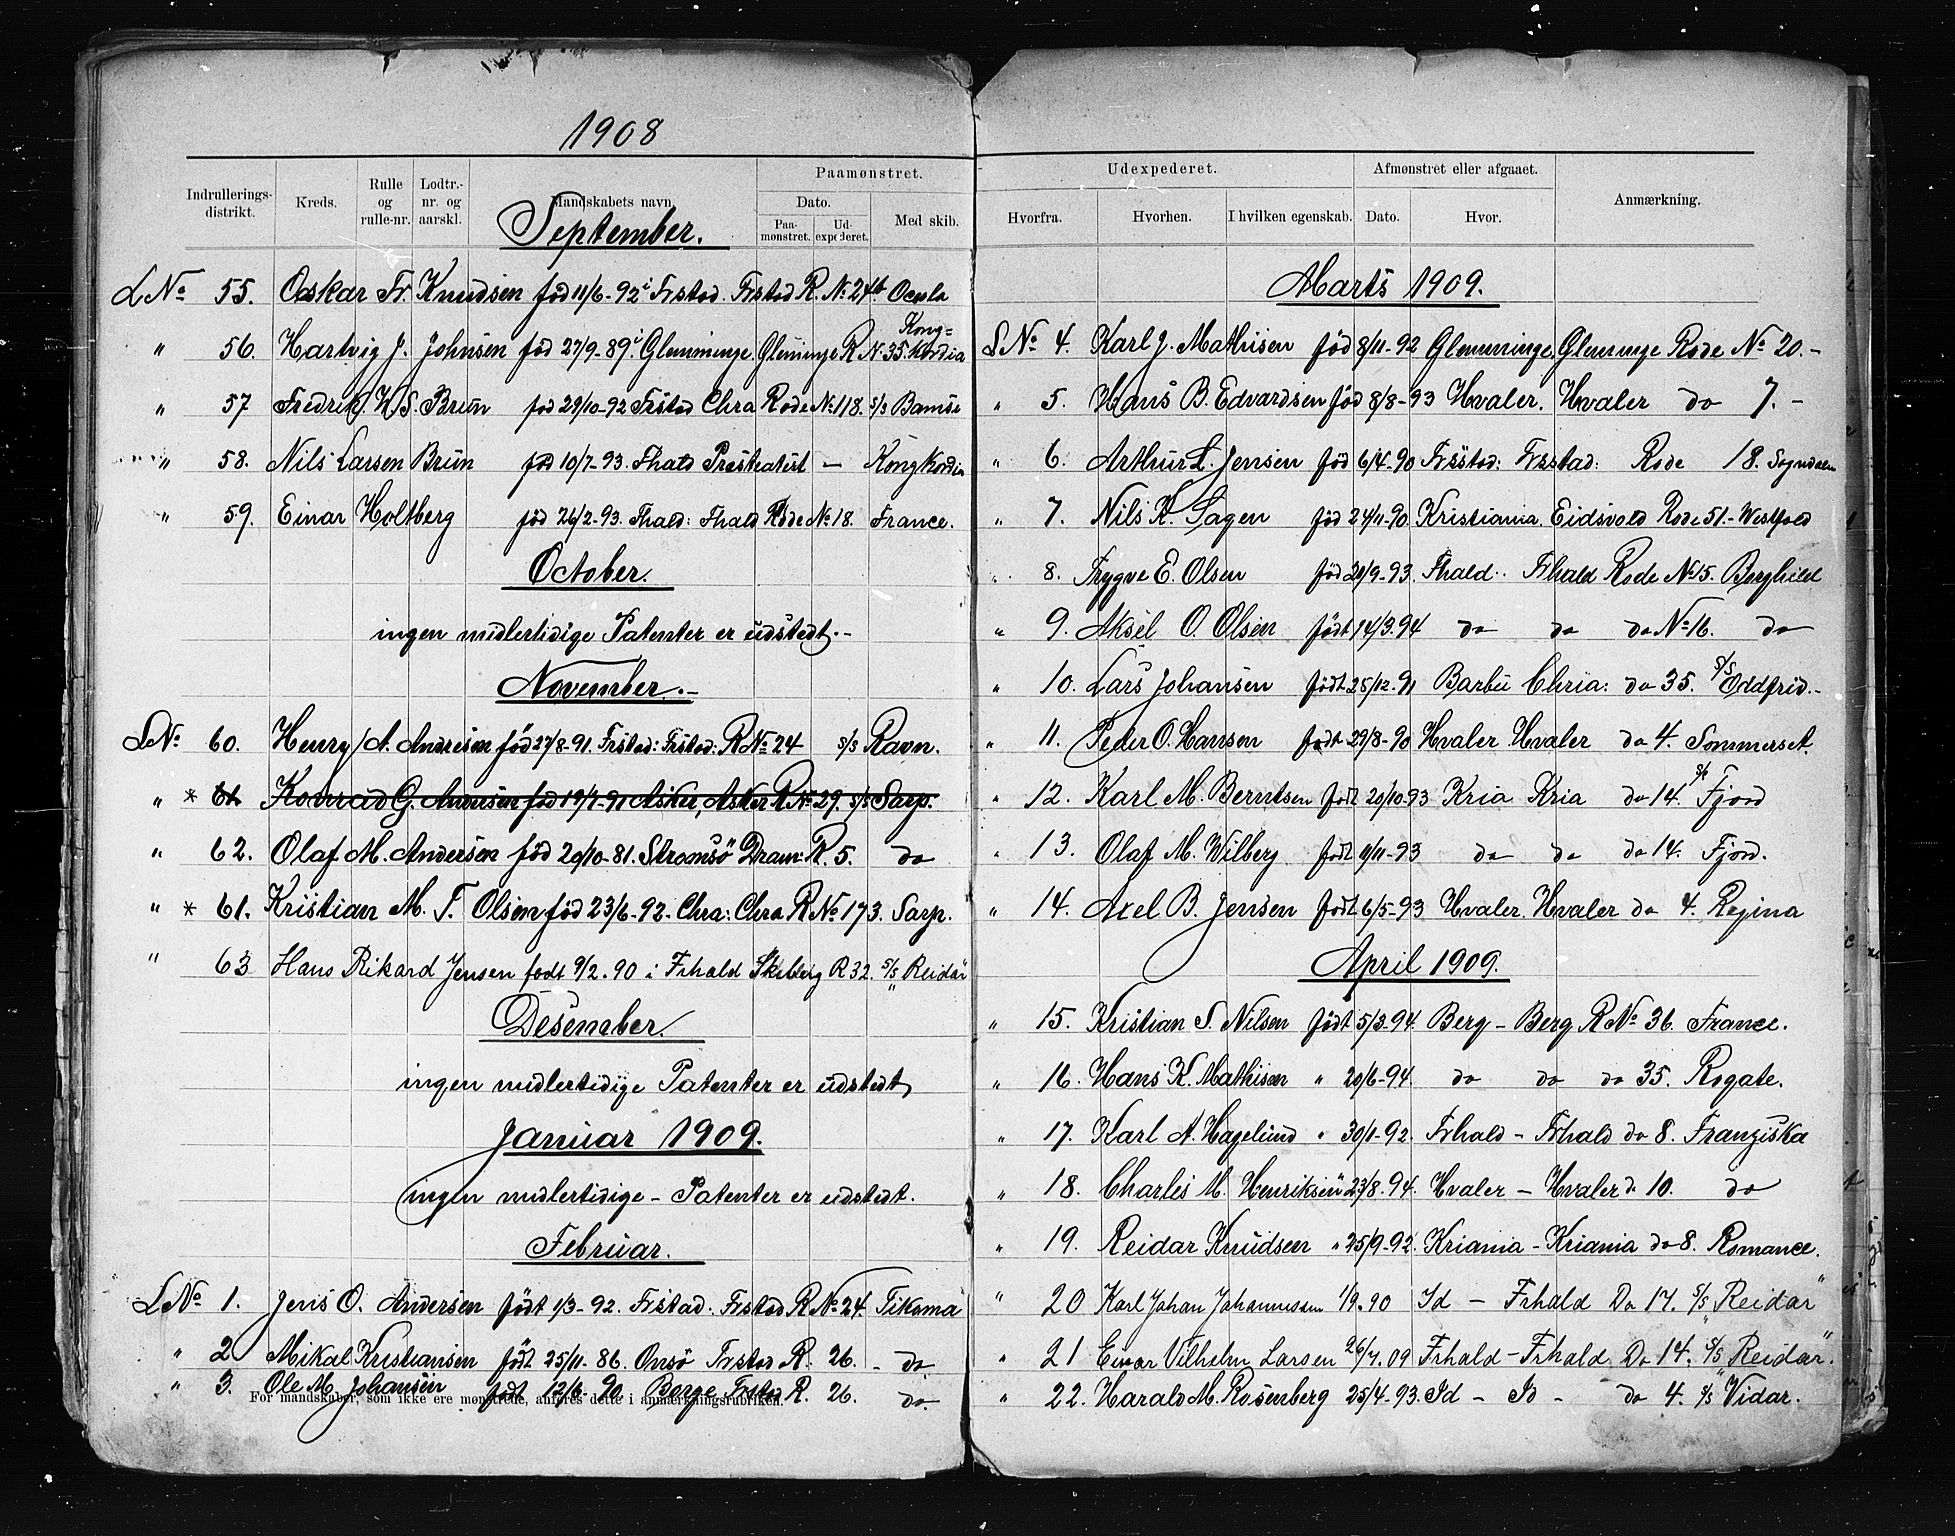 1908
Indrulleringsdistrikt. Kreds. Rulle og rulle-nr. Lodtr.-nr. og aarskl. Mandskabets navn. Paamønstret. Dato. Paamønstret. Udexpederet. Med skib.
September.
LNo 55. Oskar Fr. Knudsen fød 11/6-92 i Frstad. Frstad R. No 24b Ocula
" 56. Hartvig J. Johnsen fød 27/9-89 i Glemminge. Glemminge R No 35. Kong-Kordia
" 57 Fredrik W. S. Brun fød 29/10-92 Frstad Chra Rode No 118. s/s Bamse
" 58. Nils Larsen Brun fød 10/7-93. Fhald — Kong Kordia
" 59. Einar Holtberg fød 26/2-93. Fhald: Fhald Rode No 18. France.
October.
ingen midlertidige Patenter er udstedt.-
November.-
LNo 60. Henry A. Andresen fød 27/8-91. Frstad: Frstad: R No 24 s/s Ravn.
" * 61 Konrad G. Andresen fød 19/7-91 Asker, Asker R No 29. s/s Sarp.
" 62. Olaf M. Andersen fød 20/10-81. Strømsø Dram: R. 5. do
" * 61. Kristian M. F. Olsen fød 23/6-92. Chra: Chra R No 173. Sarp.
" 63 Hans Rikard Jensen født 9/2. 90 i Frhald Skeberg R 32. s/s "Reidar
Desember.
ingen midlertidige Patenter er udstedt,
Januar 1909.
ingen midlertidige - Patenter er udstedt.
Februar.
LNo 1. Jens O. Andersen født 1/3-92. Frstad. Frstad R No 24. Tikoma
" 2 Mikal Kristiansen født 25/11-86. Onsø Frstad R. 26. - do
" 3. Ole M. Johansen født 12/6-90 Borge Frstad R. 26. do.
For mandskaber, som ikke ere mønstrede, anføres dette i anmærkningsrubriken.
Udexpederet. Hvorfra. Hvorhen. I hvilken egenskab. Afmønstret eller afgaaet. Dato. Hvor. Anmærkning.
Marts 1909.
LNo 4. Karl J. Mathisen fød 8/11-92 Glemminge, Glemminge Rode No 20.-
" 5. Hans B. Edvardsen fød 8/8-93 Hvaler. Hvaler do 7.-
" 6. Arthur L. Jensen fød 6/4-90 Frsstad: Frsstad: Rode 18. Sogndalen
" 7. Nils K. Sagen fød 24/11-90 Kristiania. Eidsvold Rode 51.- Westfold
" 8. Trygve E. Olsen fød 20/9-93. Fhald. Frhald Rode No 15. Borghild
" 9. Aksel O. Olsen født 14/3.94 do do do No 16. do
" 10. Lars Johansen født 25/12-91 Barbu Chria: do 35. s/s Oddfrid.-
" 11. Peder O. Hansen født 29/8-90 Hvaler Hvaler do 4. Sommerset.
" 12. Karl M. Berntsen født 20/10-93 Kria Kria do 14. s/s Fjord
" 13. Olaf M. Wilberg født 9/11-93 do do do 14. Fjord.
" 14. Axel B. Jensen født 6/5-93 Hvaler. Hvaler do 4. Regina
April 1909.
" 15. Kristian S. Nilsen født 5/3.94. Berg - Berg R No 36. France.
" 16. Hans K. Mathisen " 20/6-94 do do do 35. Rogate.
" 17. Karl A. Hagelund " 30/1-92. Frhald - Frhald do 8. Franziska
" 18. Charles M. Henriksen " 23/8.94. Hvaler - Hvaler do 10. do
" 19. Reidar Knudsen " 25/9-92. Kriania - Kriania do 8. Romance.
" 20 Karl Johan Johannessen 1/9.90 Id - Frhald Do 17. s/s "Reidar"
" 21 Einar Vilhelm Larsen 26/7.09 Frhald - Frhald Do 14. s/s "Reidar".
" 22. Harald M. Rosenberg 25/4.93. Id - Id - do 4. s/s "Vidar.